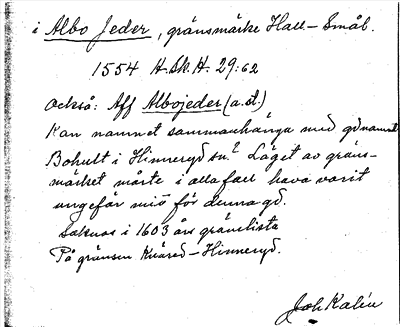 i Albo Jeder, gränsmärke Hall.- Småb.
1554 H.Sk.H. 29:62
också: Aff Albojeder (a.st.)
Kan namnet sammanhänga med gdnamnet
Bohult i Hinneryd sn? Läget av gräns-
märket måste i alla fall hava varit
ungefär mitt för denna gd.
Saknas i 1603 års gränslista
På gränsen Knäred-Hinneryd.
Joh Kalén